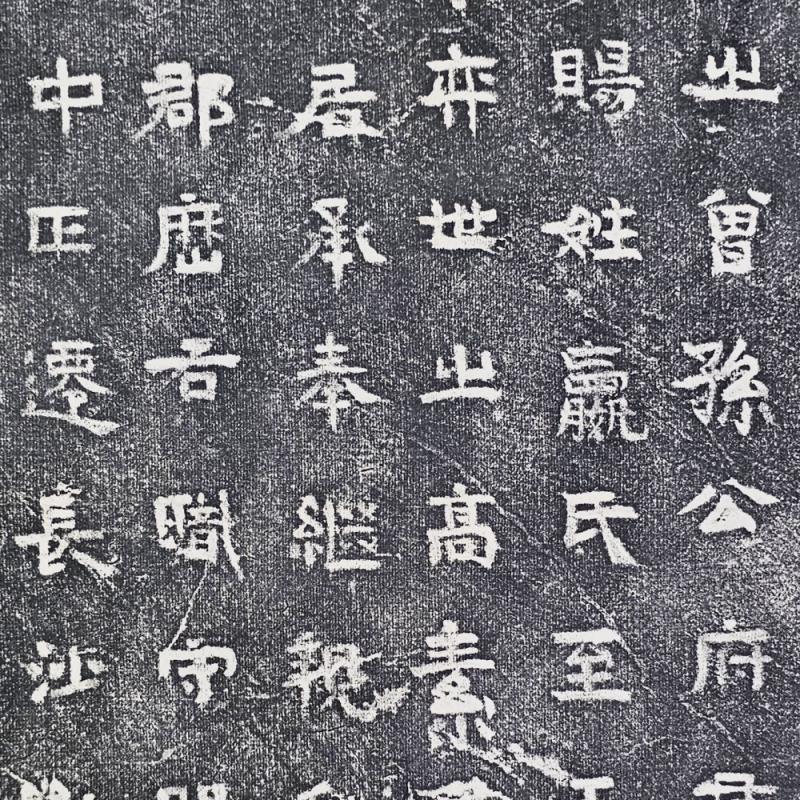 之曾孫公府君
賜姓嬴氏至
弈世之高素
居承奉繼親
郡歷右職守
中正遷長沙